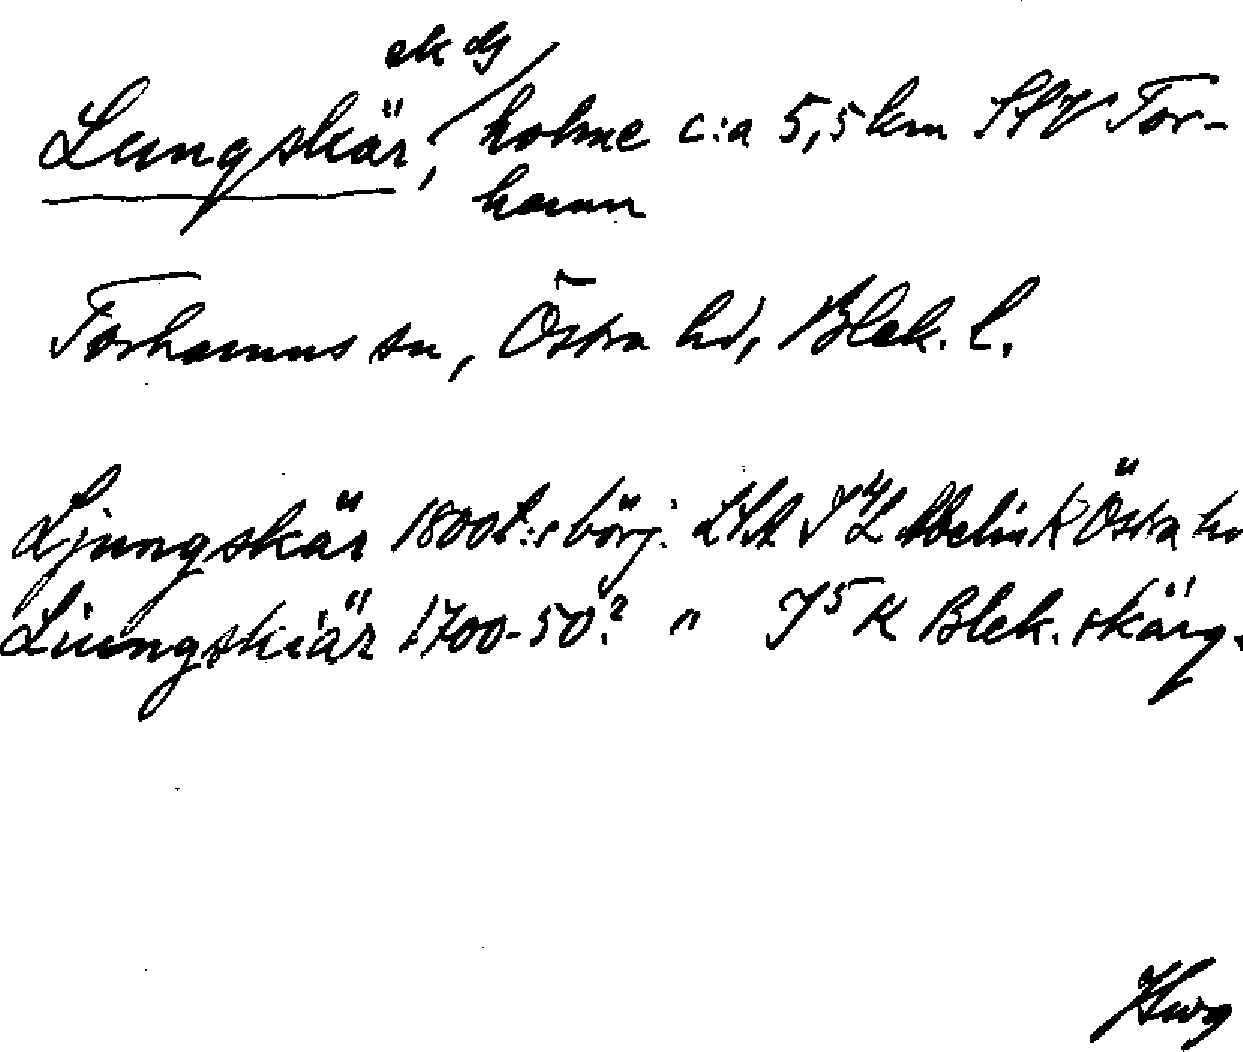 ek dg
Lungskär, holme c:a 5,5 km SSV Tor-
hamn
Torhamns sn, Östra hd, Blek. l.
Ljungskär 1800t:s börj. Östra hd
Liungskiär 1700-50? " K Blek. skärg.